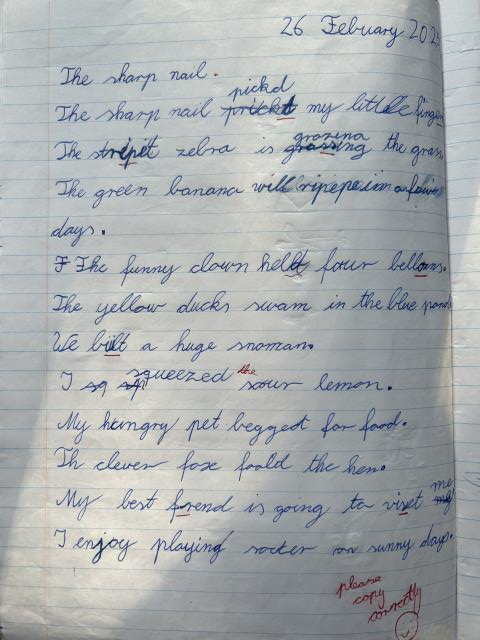 26 Febuary 202
The sharp nail.
pickd
The sharp nail prickt my little finger
grazing
The stripit zebra is grassing the gras
The green banana will ripepe in a few
days.
F The funny clown heldt four belloons.
The yellow ducks swam in the blue pond
We built a huge snoman.
I sq sqi squeezed the sour lemon.
My hungry pet begget for food.
Th clever foxe foold the hen.
My best frend is going to viset me my
I enjoy playing socter on sunny days.
please
copy
correctly